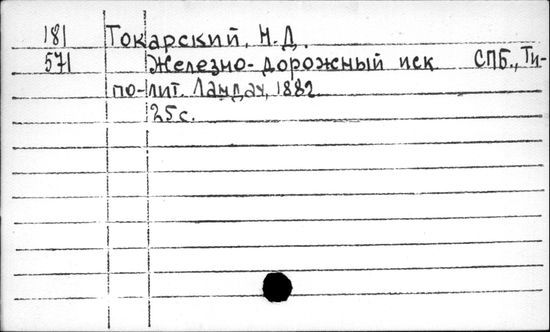 181 Токарский, Н.Д.
571 Железно-дорожный иск СПБ., Ти-
по-лит. Ландау, 1882
25с.